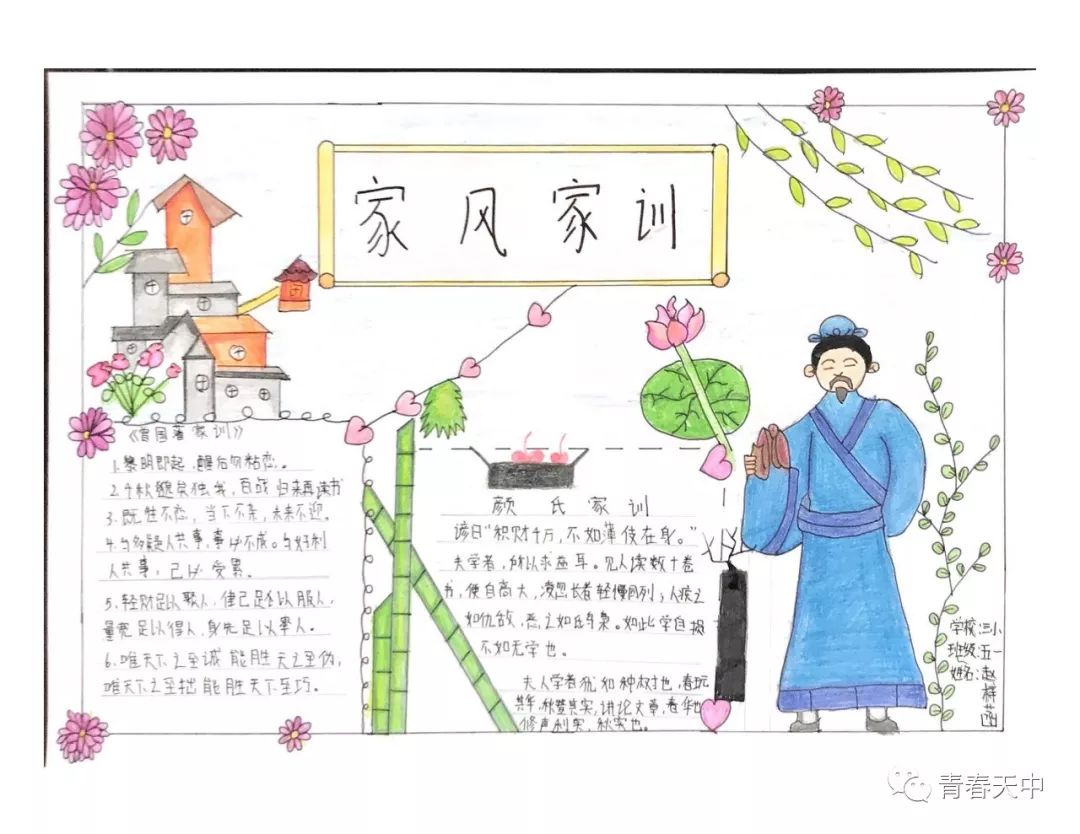 家风家训
《曾国藩家训》
1.黎明即起,醒后勿粘恋。
2.千秋邈矣独我,百战归来再读书
3.既往不恋,当下不杂,未来不迎。
4.与多疑人共事,事必不成。与好利
人共事,己必受累。
5.轻财足以聚人,律己足以服人,
量宽足以得人,身先足以率人。
6.唯天下之至诚能胜天之至伪,
唯天下之至拙能胜天下至巧。
颜氏家训
谚曰“积财千万,不如薄伎在身。”
夫学者,所以求益耳。见人读数十卷
书,便自高大,凌忽长者轻慢同列;人疾之
如仇敌,恶之如鸱枭。如此学自损
不如无学也。
夫人学者犹如种树也,春玩
其华,秋登其实,讲论文章,春华也
修身利实,秋实也。
学校:三小
班级:五一
姓名:赵梓
青春天中